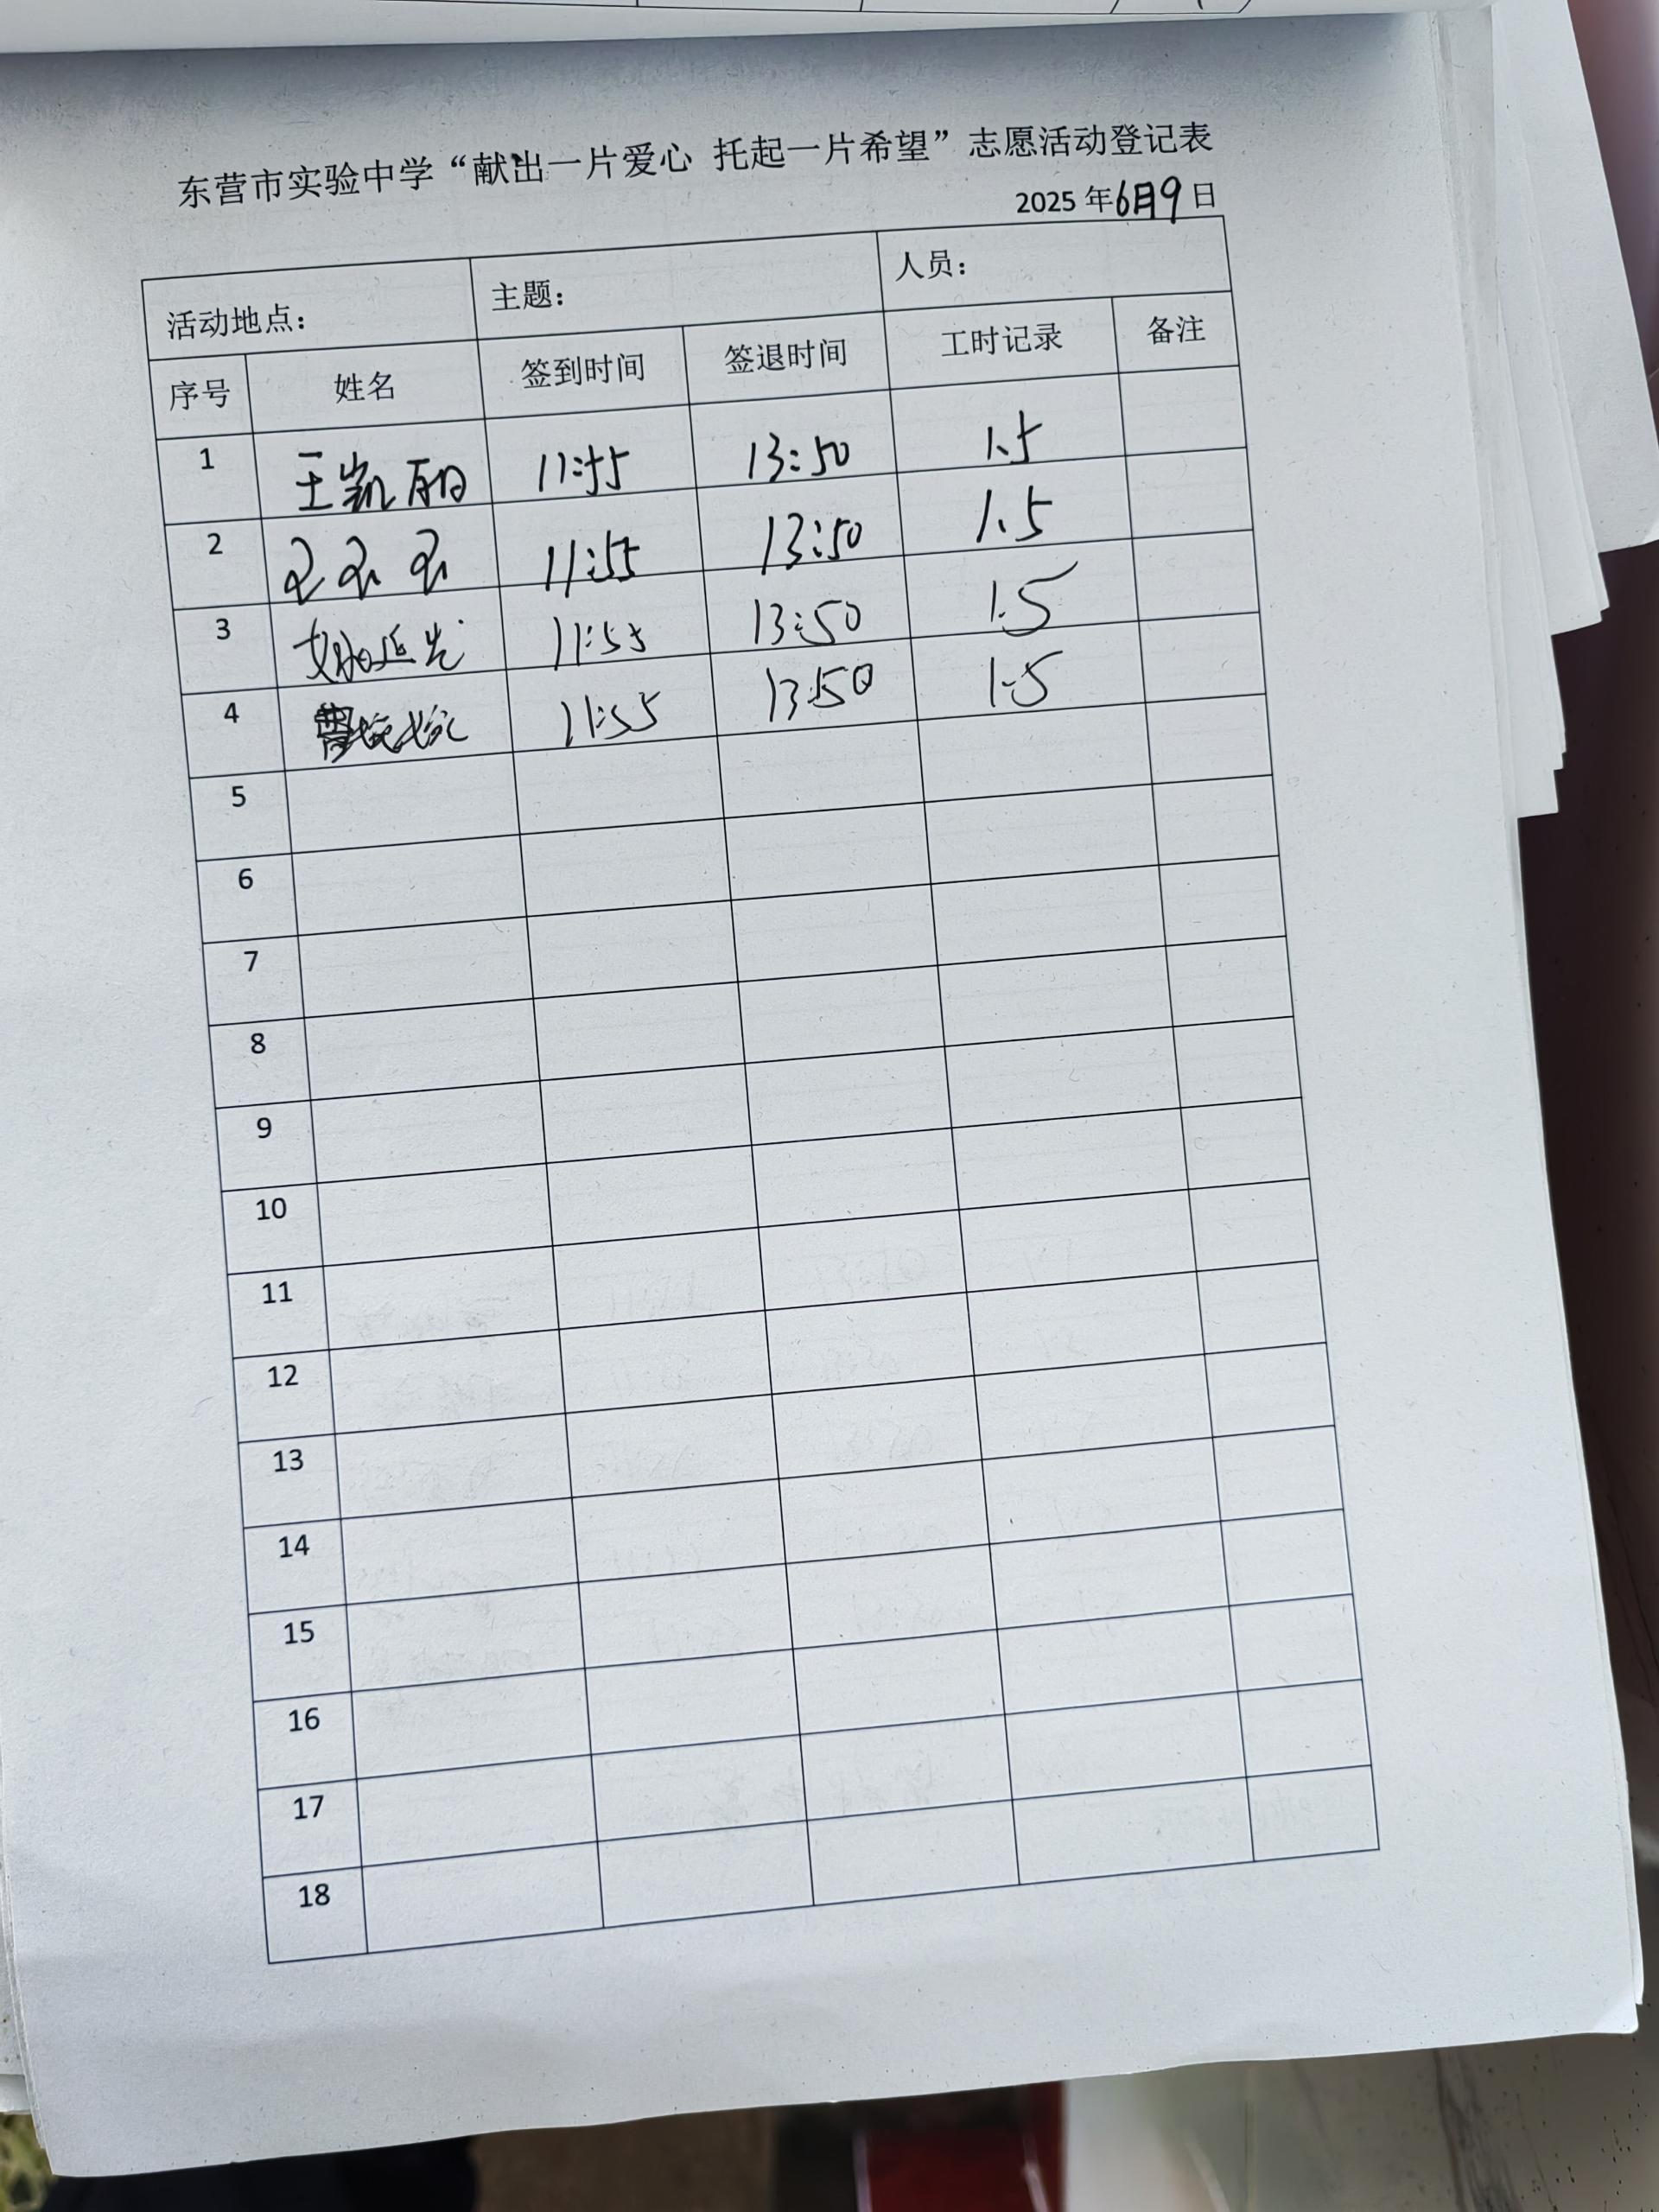 东营市实验中学“献出一片爱心 托起一片希望”志愿活动登记表
2025 年6月9日
活动地点： 主题： 人员：
序号 姓名 签到时间 签退时间 工时记录 备注
1 王凯丽 11:55 13:50 1.5
2 11:55 13:50 1.5
3 11:55 13:50 1.5
4 11:55 13:50 1.5
5
6
7
8
9
10
11
12
13
14
15
16
17
18